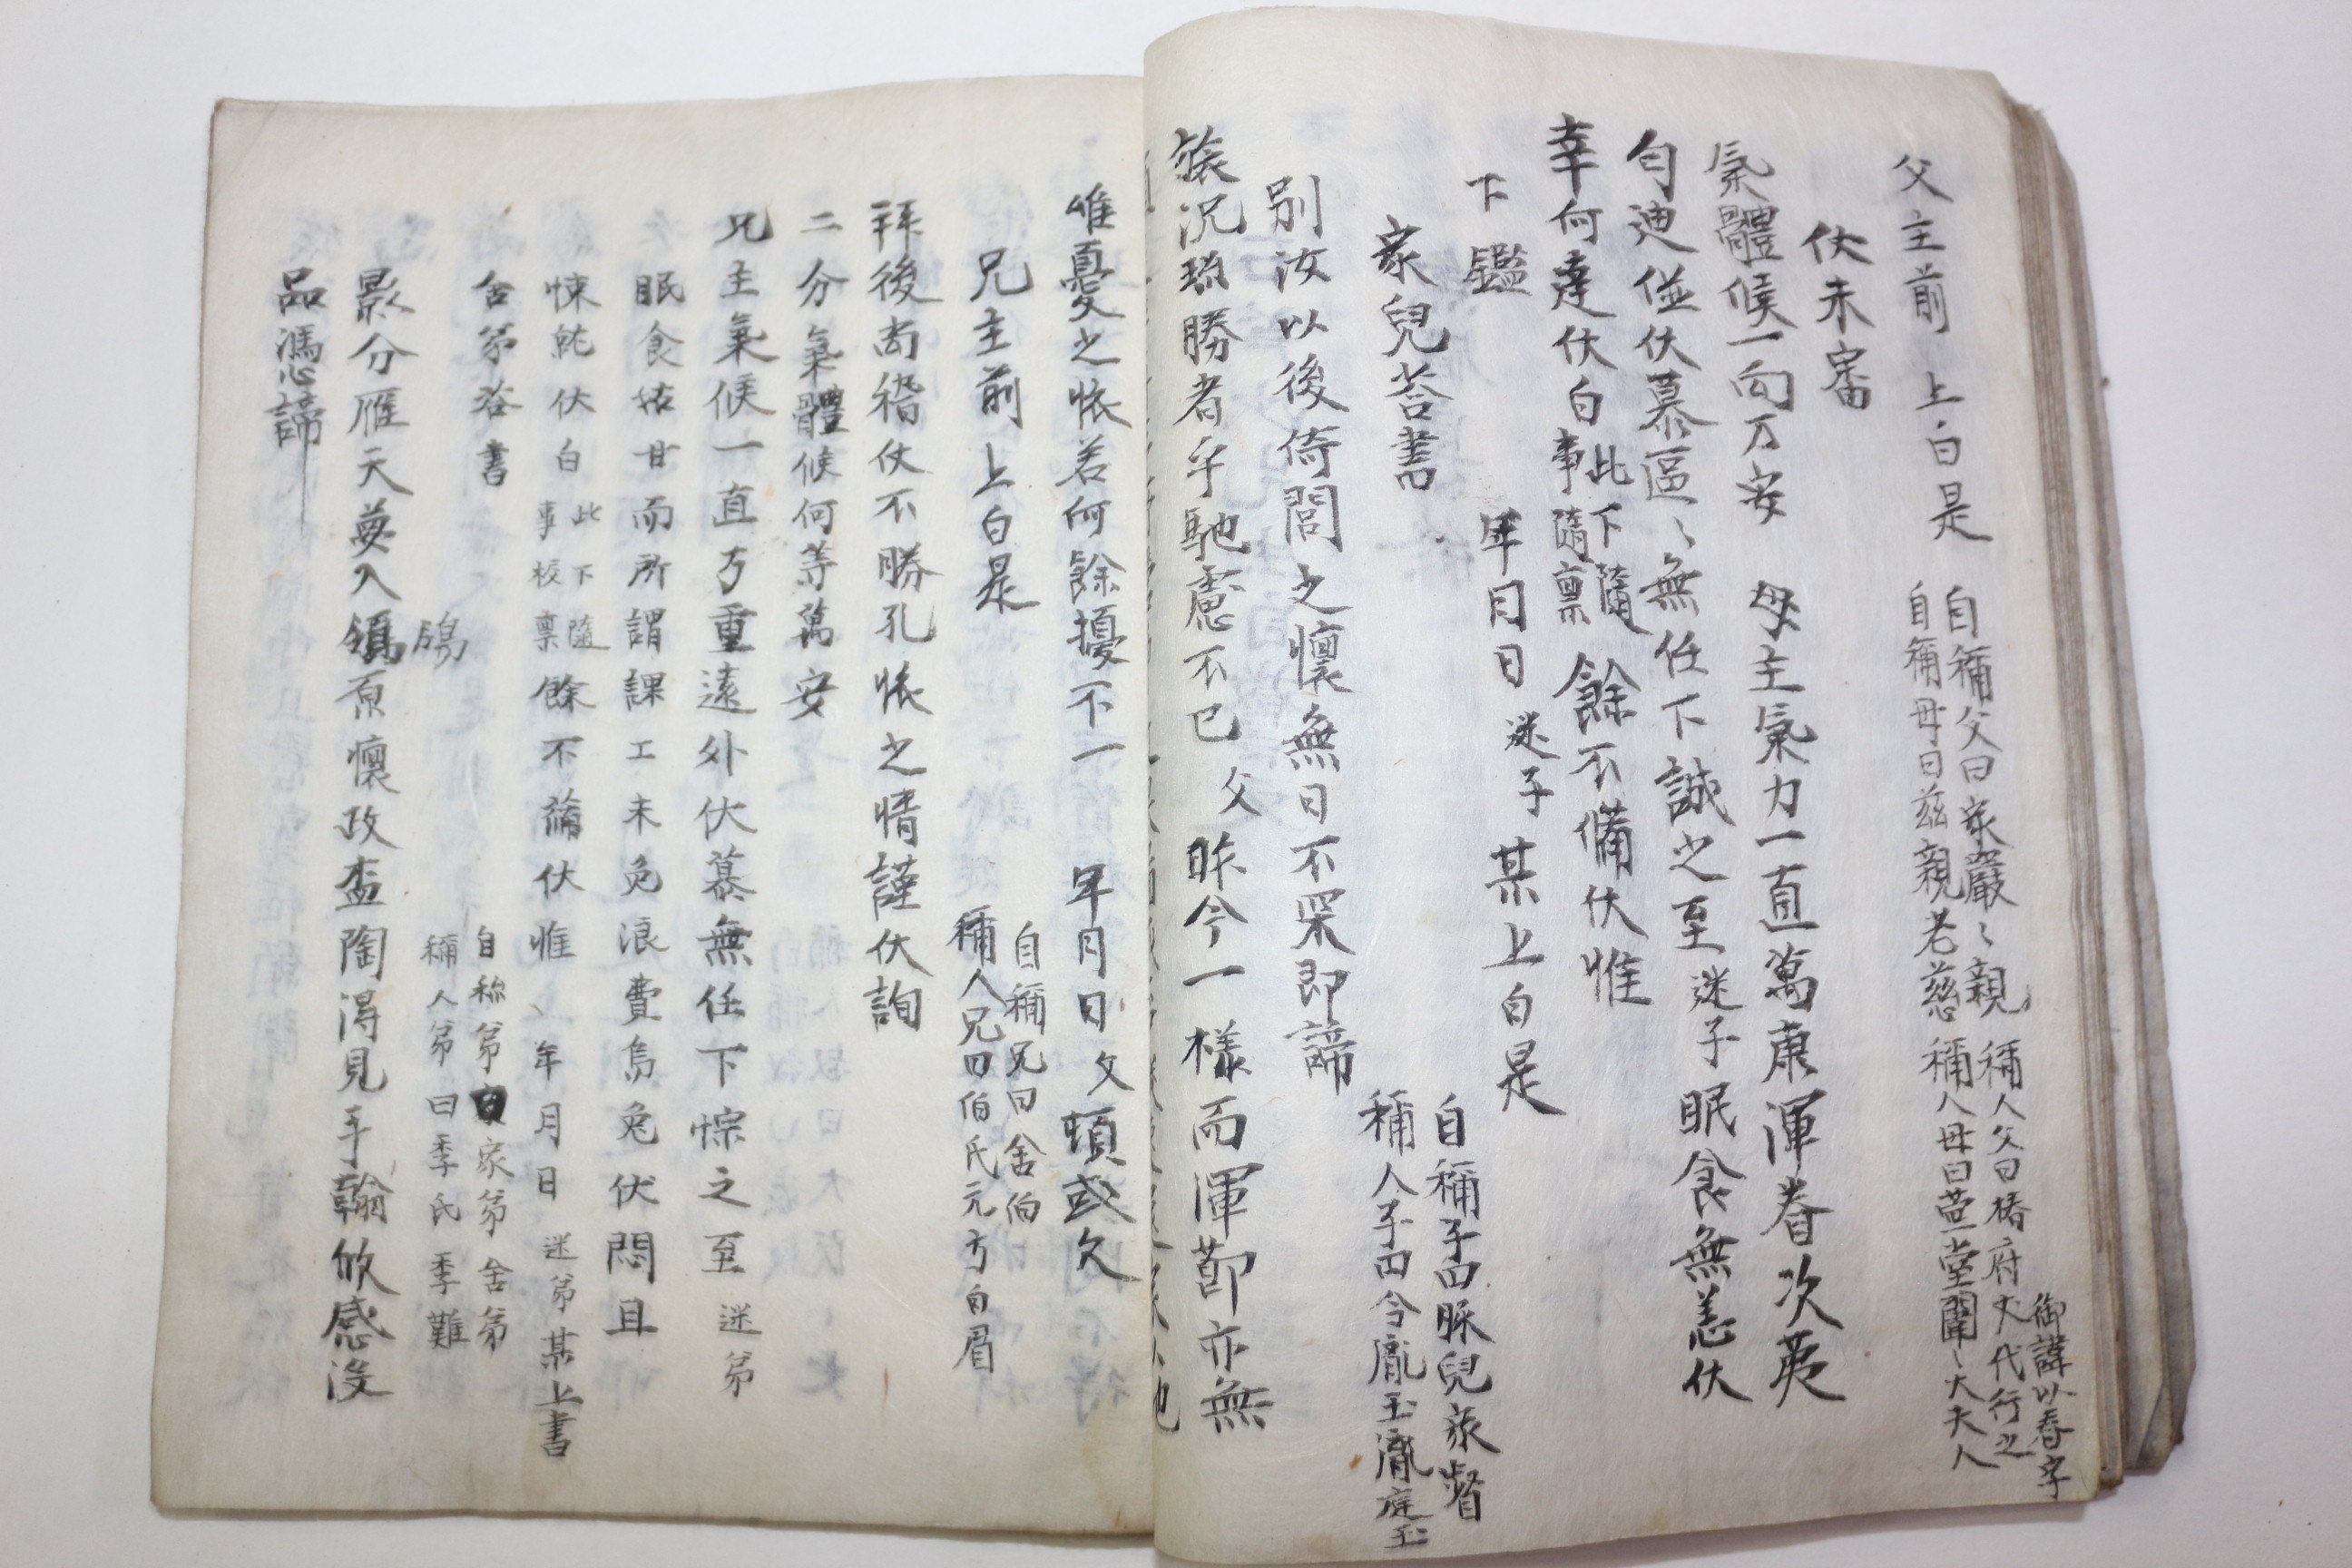 父主前 上白是 自稱父曰家嚴〻親 稱人父曰椿府丈代行之 御諱以春字
自稱母曰茲親老慈 稱人母曰萱堂闈〻大夫人
伏未審
氣體候一向万安 母主氣力一直萬康渾眷次苐
勻迪並伏慕區〻無任下誠之至迷子眠食無恙伏
幸何達伏白 此下隨事隨禀 餘不備伏惟
下鑑 年月日迷子某上白是
家兒答書 自稱子曰豚兒家督
稱人子曰令胤玉胤庭玉
別汝以後倚閭之懷無日不深即諦
旅況珎勝者乎馳慮不已父昨今一樣而渾節亦無
唯憂之悵若何餘擾不一 年月日父頓或欠
兄主前上白是 自稱兄曰舍伯
稱人兄曰伯氏元方白眉
拜後尚稽伏不勝孔悵之情謹伏詢
二分氣體候何等萬安
兄主氣候一直万重遠外伏慕無任下悰之至迷弟
眠食姑甘而所謂課工未免浪費烏兔伏悶且
悚餘伏白 此下隨事校禀 餘不備伏惟 年月日迷弟某上書
舍弟答書 自称弟曰家弟舍弟
稱人弟曰季氏季難
影分雁天夢入鴒原懷政盍陶淂見手翰欣感沒
品馮諦